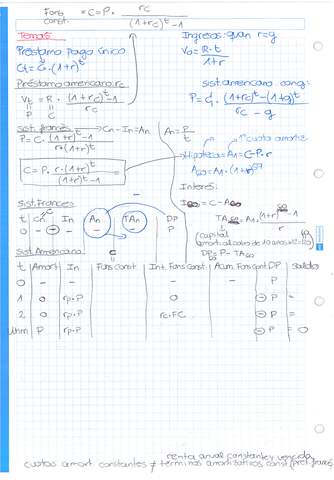 Fons const. = C = P · rc / (1+rc)^t - 1
Tema 5
Préstamo pago único
Ct = C0 · (1+r)^t
Préstamo americano: rc
Vt = R · (1+rc)^t - 1 / rc
P C
Ingresos: quan r=g
V0 = R·t / 1+r
sist. americano con g:
P = C · (1+rc)^t - (1+g)^t / rc - g
sist. francés → Cn - In = An
An = P / t
P = C · (1+r)^t - 1 / r·(1+r)^t
C = P · r·(1+r)^t / (1+r)^t - 1
1ª cuota amortiz
Hipoteca = A1 = C - P·r
A60 = A1 · (1+r)^59
Interés:
I60 = C - A60
Sist. Frances
t Cn In An TAn DP
0 - - - - P
TA60 = A1 · (1+r)^60 - 1 / r
(capital amort. al cabo de 10 anys x 12 = 120)
DP = P - TA60
Sist. Americano
t Amort In Fons Const Int. Fons Const. Acum. Fons Const DP Saldo
0 - - - - - P
1 0 rp·P 0 P =
2 0 rp·P rc·FC P =
últim P rp·P P = 0
renta anual constante y vencida
cuotas amort. constantes ≠ términos amortizativos const (prét. francés)